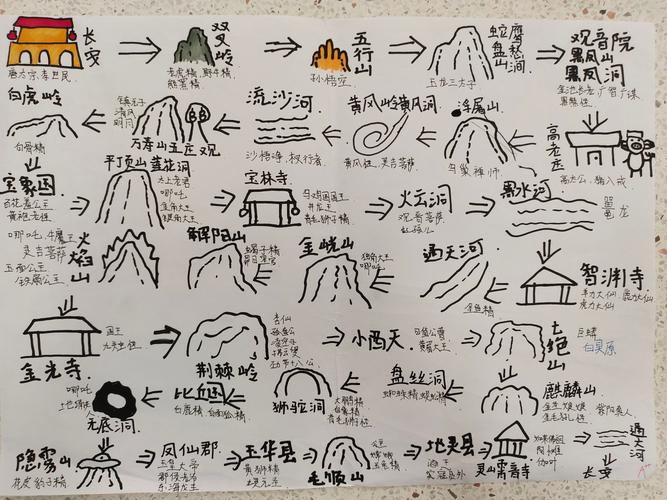 长安
唐太宗 李世民
双叉岭
老虎精,野牛精,
熊罴精
五行山
孙悟空
蛇盘山
鹰愁涧
玉龙三太子
观音院
黑风山
黑风洞
金池长老 广智广谋
黑熊精
白虎岭
白骨精
镇元子
清风
明月
万寿山五庄观
流沙河
沙悟净,
黄风岭黄风洞
黄风怪,灵吉菩萨
浮屠山
乌巢禅师
高老庄
高太公,猪八戒
宝象国
百花羞公主
黄袍老怪
平顶山 莲花洞
太上老君
哪吒
金角大王
银角大王
宝林寺
乌鸡国国王
井龙王
青毛狮子精
火云洞
观音菩萨
红孩儿
黑水河
鼍龙
哪吒,牛魔王
灵吉菩萨
玉面公主
铁扇公主
火焰山
解阳山
蝎子精
金𫒗山
独角大王
哪吒
通天河
金鱼精
智渊寺
羊力大仙 鹿力大仙
虎力大仙
金光寺
国王
九头虫怪
荆棘岭
杏仙
孤直公
凌空子
拂云叟
劲节十八公
小西天
黄眉大王
七绝山
巨蟒
哪吒
无底洞
比丘国
白鹿精,白面狐精
狮驼洞
大鹏精
白象精
青狮精
盘丝洞
蜘蛛精 蜈蚣精
麒麟山
金圣娘娘
紫阳真人
隐雾山
花皮豹子精
凤仙郡
玉皇大帝
郡侯
东海龙王
玉华县
黄狮精
毛颖山
玉兔精
地灵县
寇员外
灵山雷音寺
如来佛祖
阿傩
伽叶
通天河
长安
A+